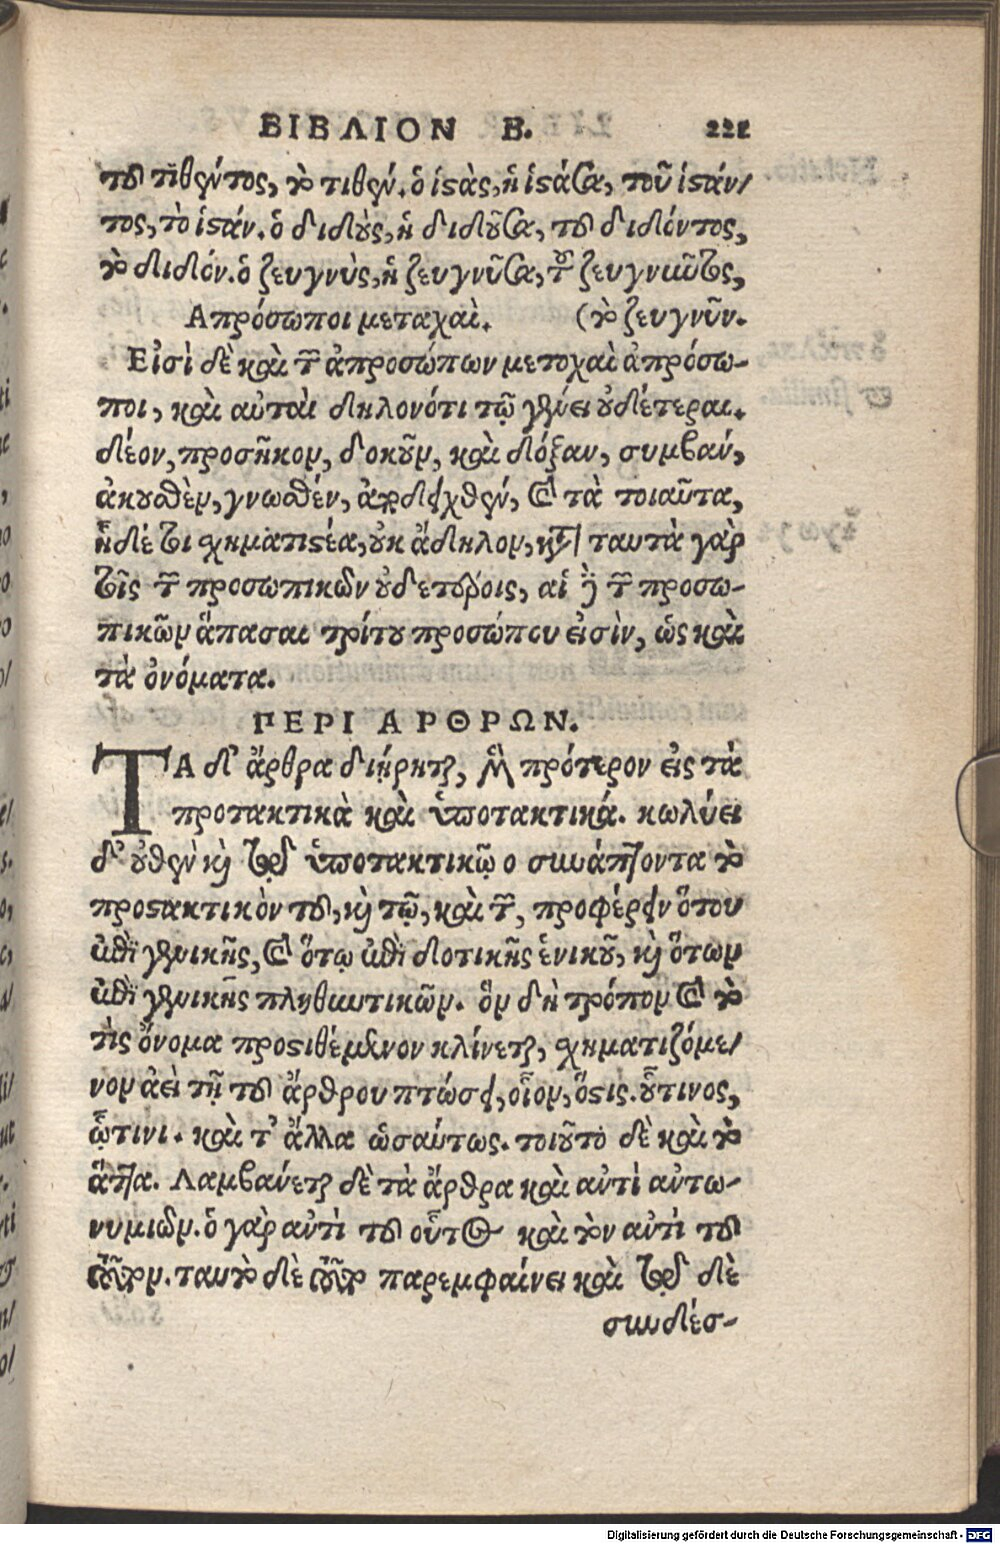 ΒΙΒΛΙΟΝ Β. 221
τοῦ τιθέντος, τὸ τιθέν. ὁ ἱστὰς, ἡ ἱστᾶσα, τοῦ ἱστάν/
τος, τὸ ἱστάν. ὁ διδοὺς, ἡ διδοῦσα, τοῦ διδόντος,
τὸ διδόν. ὁ ζευγνὺς, ἡ ζευγνῦσα, τοῦ ζευγνῦντος,
Απρόσωποι μεταχαὶ. (τὸ ζευγνῦν.
Εἰσὶ δὲ καὶ τῶν ἀπροσώπων μετοχαὶ ἀπρόσω-
ποι, καὶ αὐταὶ δηλονότι τῷ γένει οὐδέτεραι.
δέον, προσῆκον, δοκοῦν, καὶ δόξαν, συμβαίν,
ἀκουσθὲν, γνωσθέν, παραδειχθέν, καὶ τὰ τοιαῦτα,
ἡ δέ τοι σχηματιστέα, οὐκ ἄδηλον, κατὰ ταυτὰ γὰρ
τοῖς τῶν προσωπικῶν οὐδετέροις, αἱ δὲ τῶν προσω-
πικῶν ἅπασαι τρίτου προσώπου εἰσὶν, ὡς καὶ
τὰ ὀνόματα.
ΠΕΡΙ ΑΡΘΡΩΝ.
ΤΑ δ' ἄρθρα διῄρηται, μὲν πρότερον εἰς τὰ
προτακτικὰ καὶ ὑποτακτικά. κωλύει
δ' οὐθὲν καὶ τοῦδε ὑποτακτικῷ ο συνάπτοντα τὸ
προστακτικὸν τοῦ, καὶ τῷ, καὶ τῶν, προφέρειν ὅτου
ἐπὶ γενικῆς, καὶ ὅτῳ ἐπὶ δοτικῆς ἑνικοῦ, καὶ ὅτων
ἐπὶ γενικῆς πληθυντικῶν. ὃν δὴ τρόπον καὶ τὸ
τὶς ὄνομα προστιθέμενον κλίνεται, σχηματιζόμε/
νον ἀεὶ τῇ τοῦ ἄρθρου πτώσει, οἷον, ὅστις. οὗτινος,
ᾧτινι. καὶ τ' ἄλλα ὡσαύτως. τοιοῦτο δὲ καὶ τὸ
ἅττα. Λαμβάνεται δὲ τὰ ἄρθρα καὶ αὐτὶ αὐτω-
νυμιῶν. ὁ γὰρ αὐτὶ τοῦ οὗτος καὶ τὸν αὐτὶ τοῦ
τοῦτον. ταυτὸ δὲ τοῦτο παρεμφαίνει καὶ τοῦδε δὲ
συνδέσ-
Digitalisierung gefördert durch die Deutsche Forschungsgemeinschaft - DFG